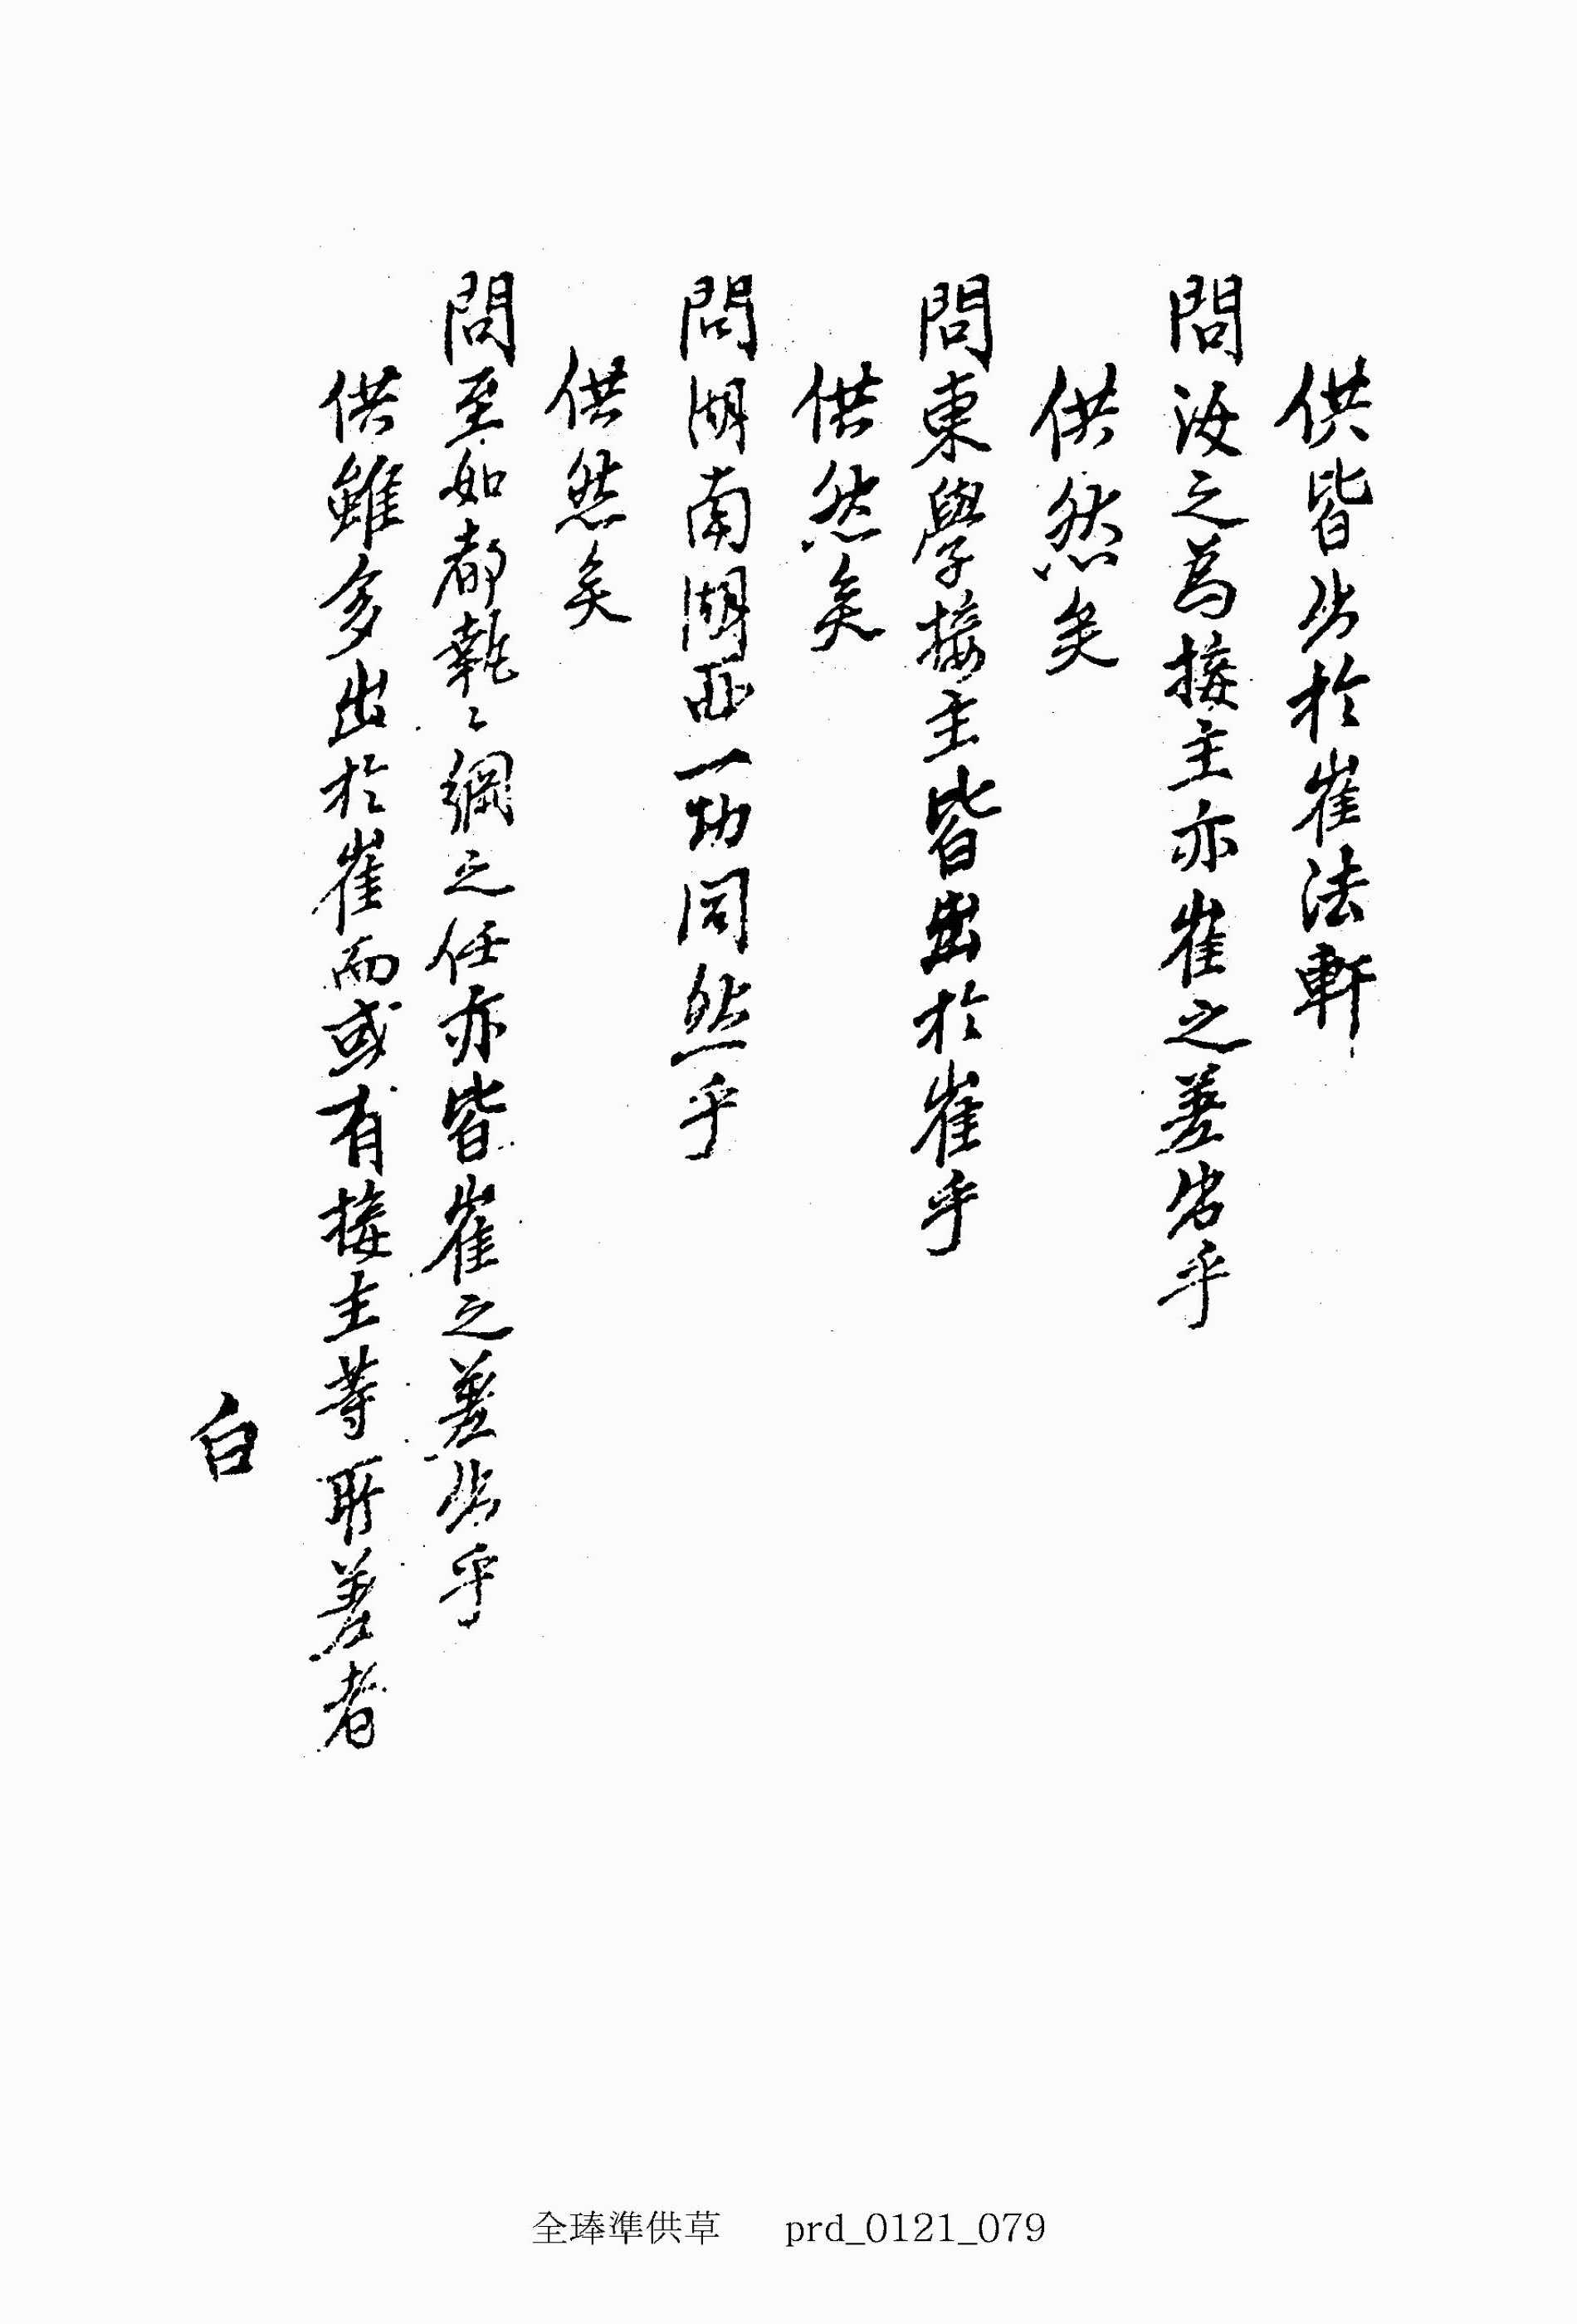 供皆出於崔法軒
問汝之爲接主亦崔之差出乎
供然矣
問東學接主皆出於崔乎
供然矣
問湖南湖西一功同然乎
供然矣
問至如都執〻綱之任亦皆崔之差出乎
供雖多出於崔而或有接主等所差者
白
全琫準供草 prd_0121_079